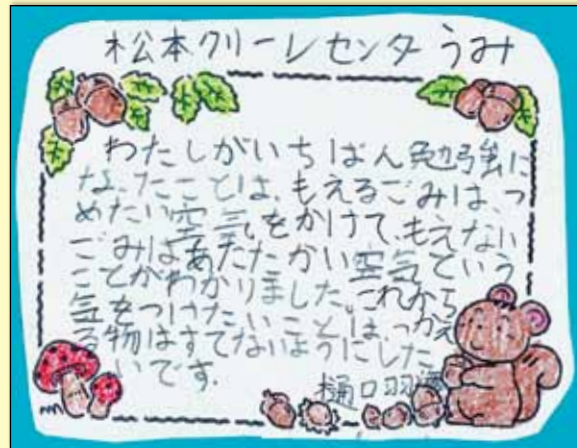 松本クリーレセンター うみ
わたしがいちばん勉強に
なったことは、もえるごみは、つ
めたい空気をかけて、もえない
ごみはあたたかい空気という
ことがわかりました。これから
気をつけたいことは、つかえ
る物はすてないようにした
いです。
樋口羽海